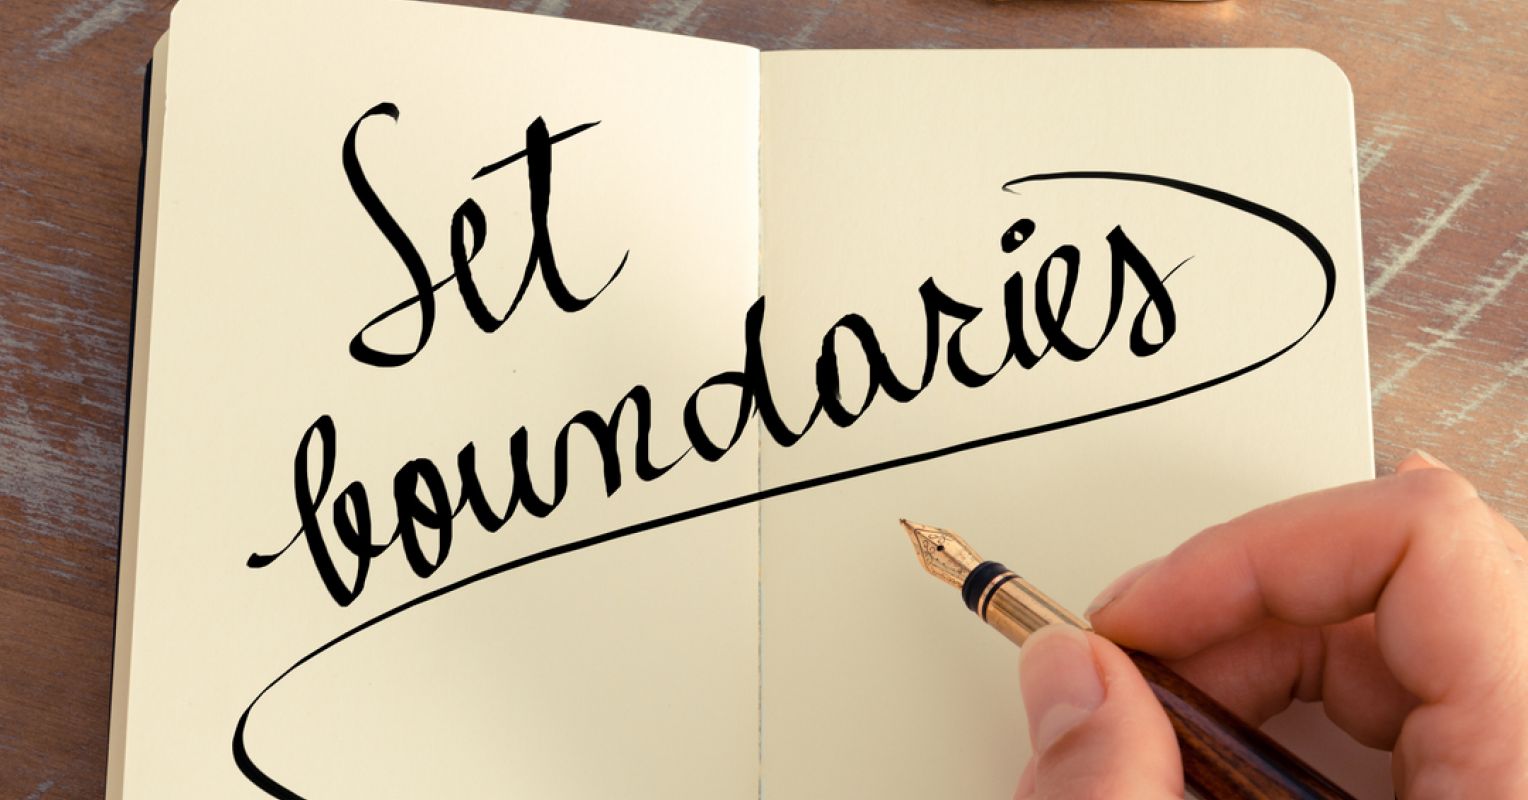 Set
boundaries